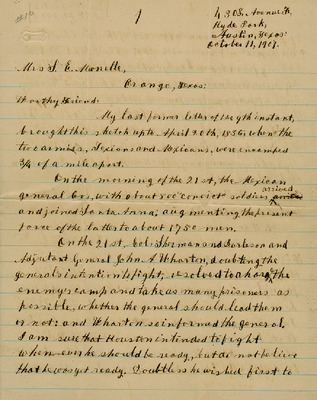 1
430S. Avenue H,
Hyde Park,
Austin, Texas:
October 11, 1901.
Mrs S. E. Monelle,
Orange, Texas:
Worthy Friend:
My last former letter of the 9th instant,
brought this sketch up to April 20th, 1836, when the
two armies, Texians and Mexicans, were encamped
3/4 of a mile apart.
On the morning of the 21st, the Mexican
general Cos, with about 500 "convict" soldiers arrived
and joined Santa Anna; augmenting the present
force of the latter to about 1750 men.
On the 21st, Cols. Sherman and Burleson and
Adjutant General John A Wharton, doubting the
general's intention to fight, resolved to charge the
enemy's camp and take as many prisoners as
possible, whether the general should lead them
or not; and Wharton so informed the General.
I am sure that Houston intended to fight
whenever he should be ready, but do not believe
that he was yet ready. Doubtless he wished first to